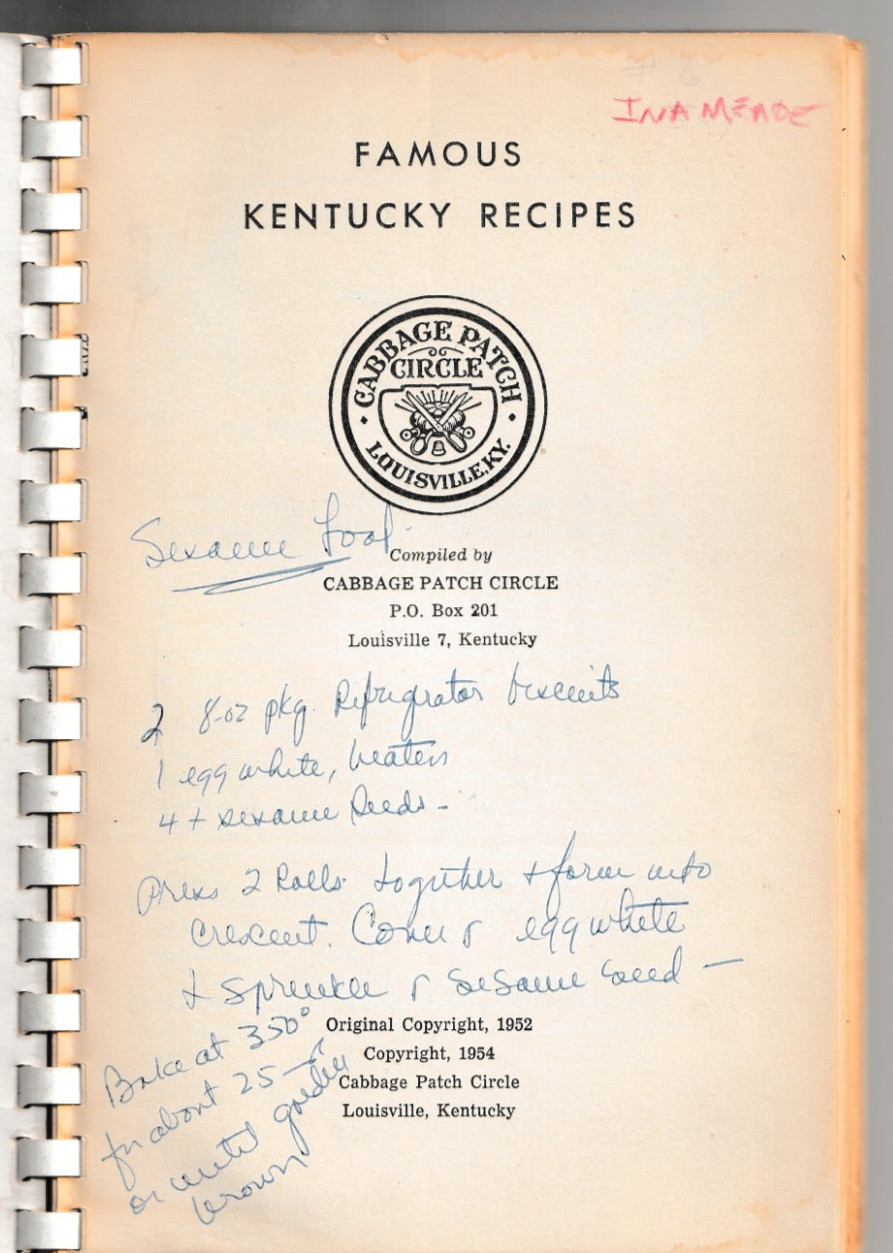 INA MEADE
FAMOUS
KENTUCKY RECIPES
CABBAGE PATCH
CIRCLE
LOUISVILLE, KY.
Sesame Loaf
Compiled by
CABBAGE PATCH CIRCLE
P.O. Box 201
Louisville 7, Kentucky
2 8-oz pkg. Refrigrator biscuits
1 egg white, beaten
4 t sesame seeds -
Press 2 Rolls together + form into
crescent. Cover egg white
+ sprinkle sesame seed -
Bake at 350°
for about 25
or until golden
brown
Original Copyright, 1952
Copyright, 1954
Cabbage Patch Circle
Louisville, Kentucky